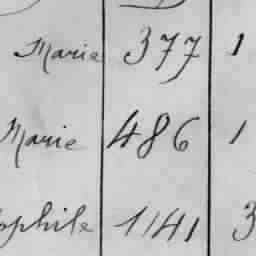 Marie 377 1
Marie 486 1
ophile 1141 3